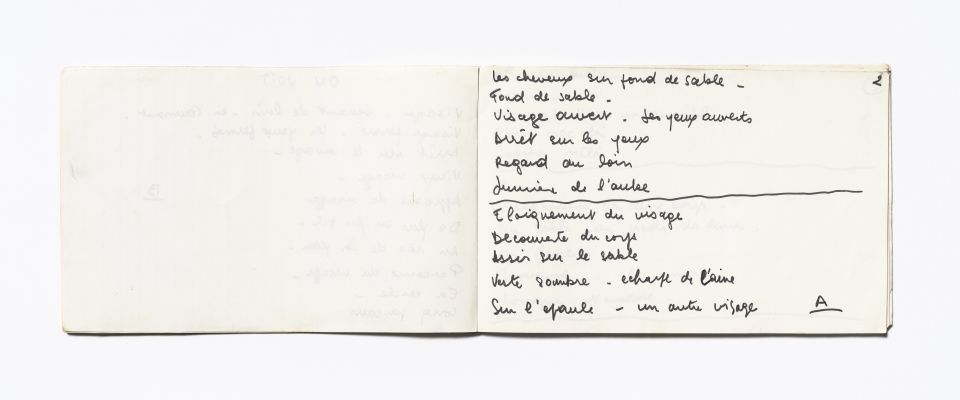 2
les cheveux sur fond de sable -
Fond de sable -
Visage ouvert. Les yeux ouverts
Arrêt sur les yeux
Regard au loin
Lumière de l'aube
Eloignement du visage
Decouverte du corps
Assis sur le sable
Veste sombre - echarpe de laine
Sur l'epaule - un autre visage
A